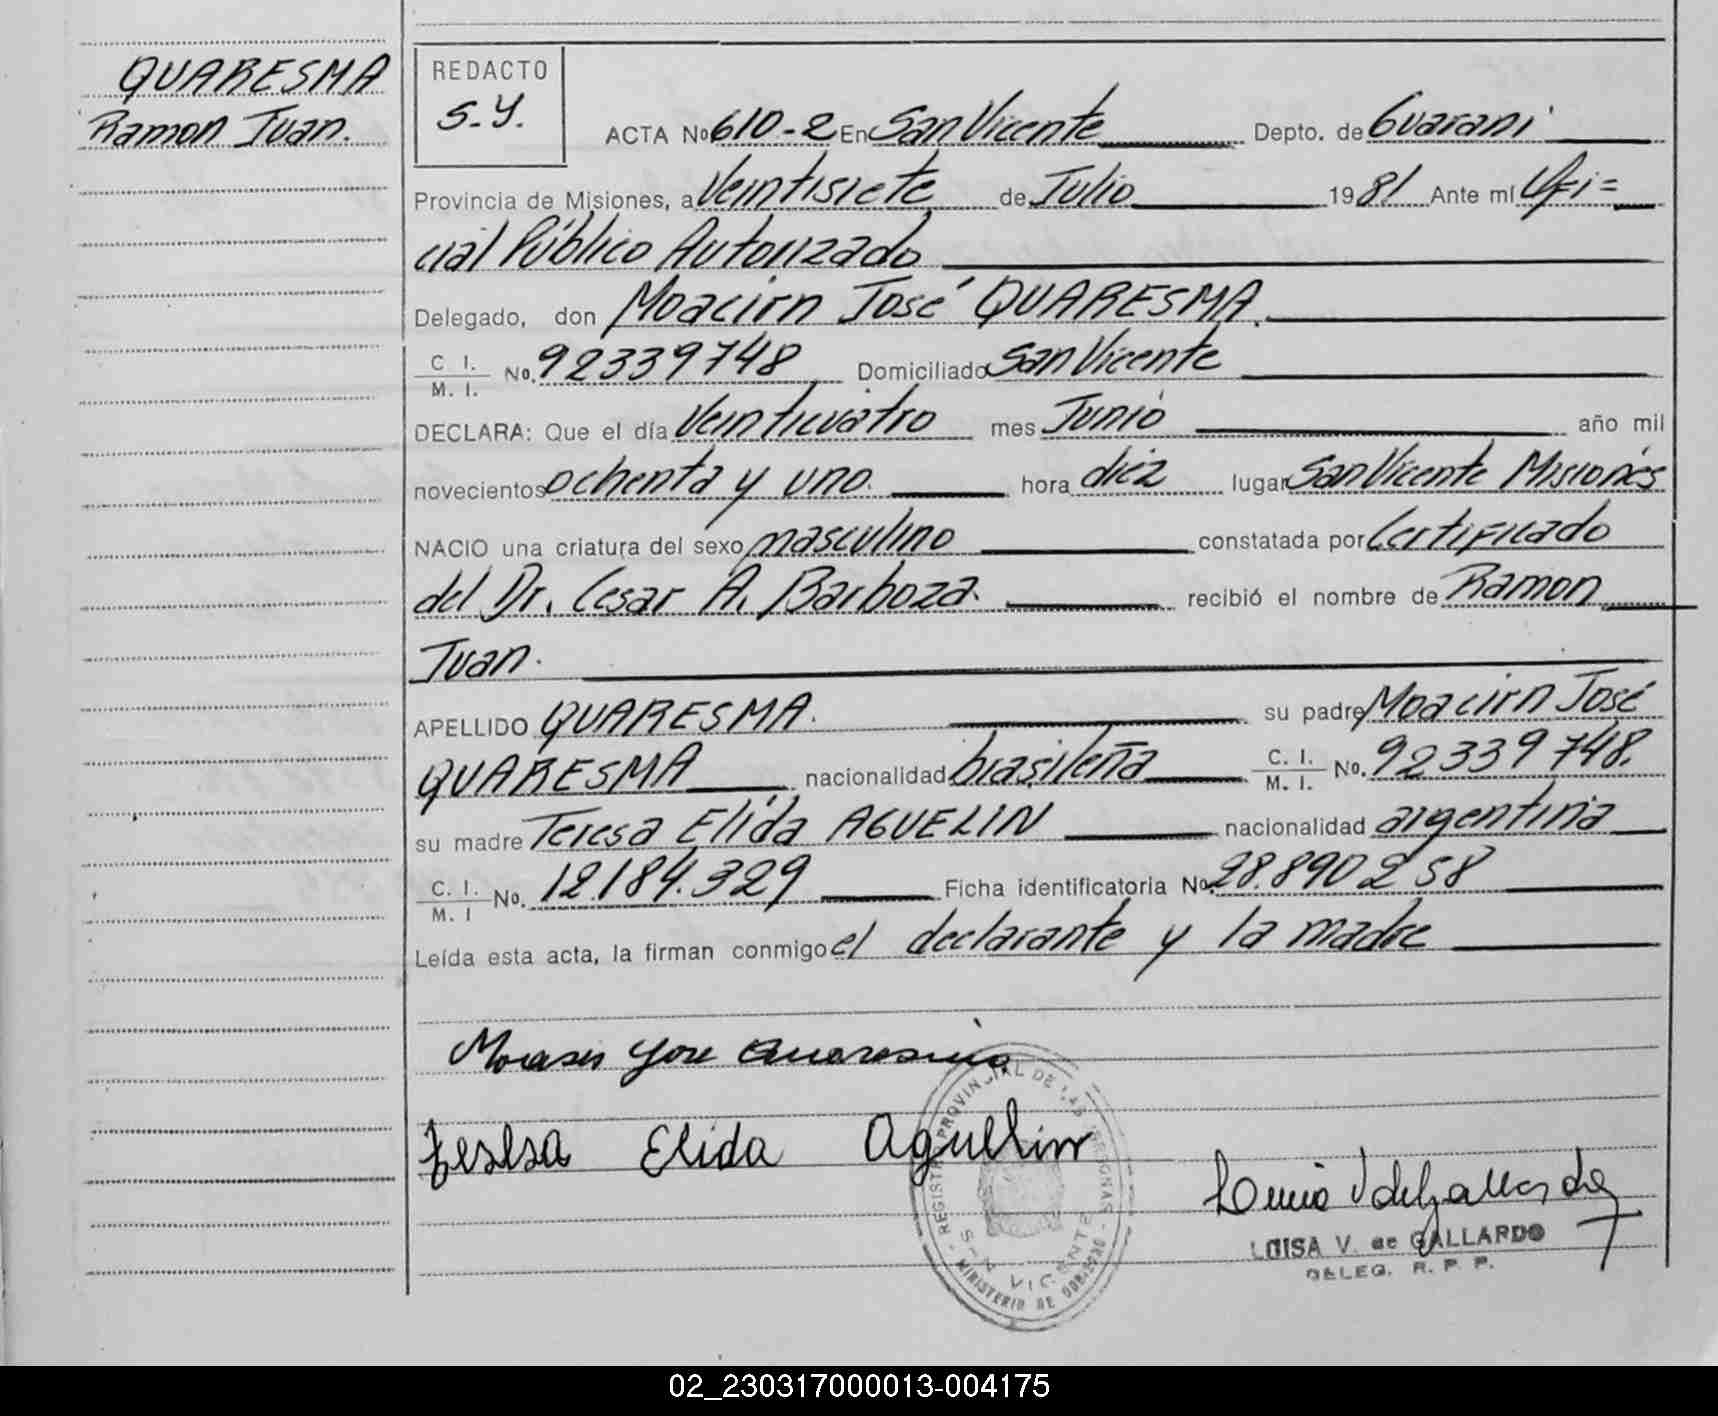 QUARESMA
Ramon Juan.
REDACTO
S.Y.
ACTA No 610-2 En San Vicente Depto. de Guarani
Provincia de Misiones, a Veintisiete de Julio 1981 Ante mí Ofi=
cial Público Autorizado
Delegado, don Moacirn José QUARESMA.
C. I. / M. I. No. 92339748 Domiciliado San Vicente
DECLARA: Que el día Veinticuatro mes Junio año mil
novecientos ochenta y uno. hora diez lugar San Vicente Misiones
NACIO una criatura del sexo masculino constatada por Certificado
del Dr. Cesar A. Barboza. recibió el nombre de Ramon
Juan.
APELLIDO QUARESMA. su padre Moacirn José
QUARESMA nacionalidad brasileña C. I. / M. I. No. 92339748.
su madre Teresa Elida AGUELIN nacionalidad argentina
C. I. / M. I No. 12.184.329 Ficha identificatoria No. 28.890258
Leída esta acta, la firman conmigo el declarante y la madre
Elida
REGISTRO PROVINCIAL DE LAS PERSONAS
SAN VICENTE
MINISTERIO DE GOBIERNO
LUISA V. de GALLARDO
DELEG. R. P. P.
02_230317000013-004175